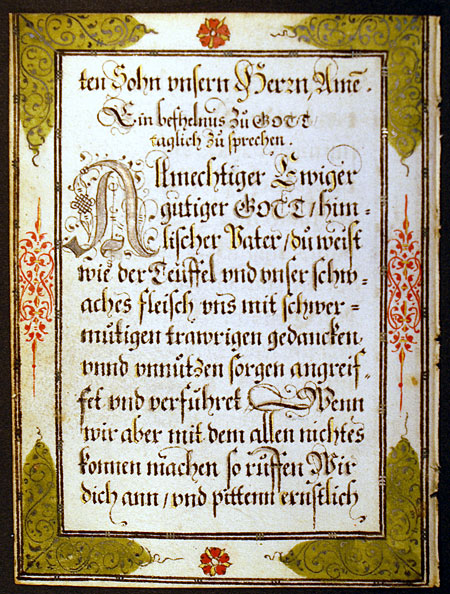 ten Sohn vnsern Herrn, Amē.
Ein befhelnus zu GOTT
täglich zu sprechen.
Allmechtiger Ewiger
gütiger GOTT/him-
lischer Vater/du weist
wie der Teüffel vnd vnser schw-
aches fleisch vns mit schwer-
mütigen trawrigen gedancken
vnnd vnnützen sorgen angreif-
fet vnd verführet Wenn
wir aber mit dem allen nichtes
konnen machen so rüffen Wir
dich ann/vnd pittenn ernstlich